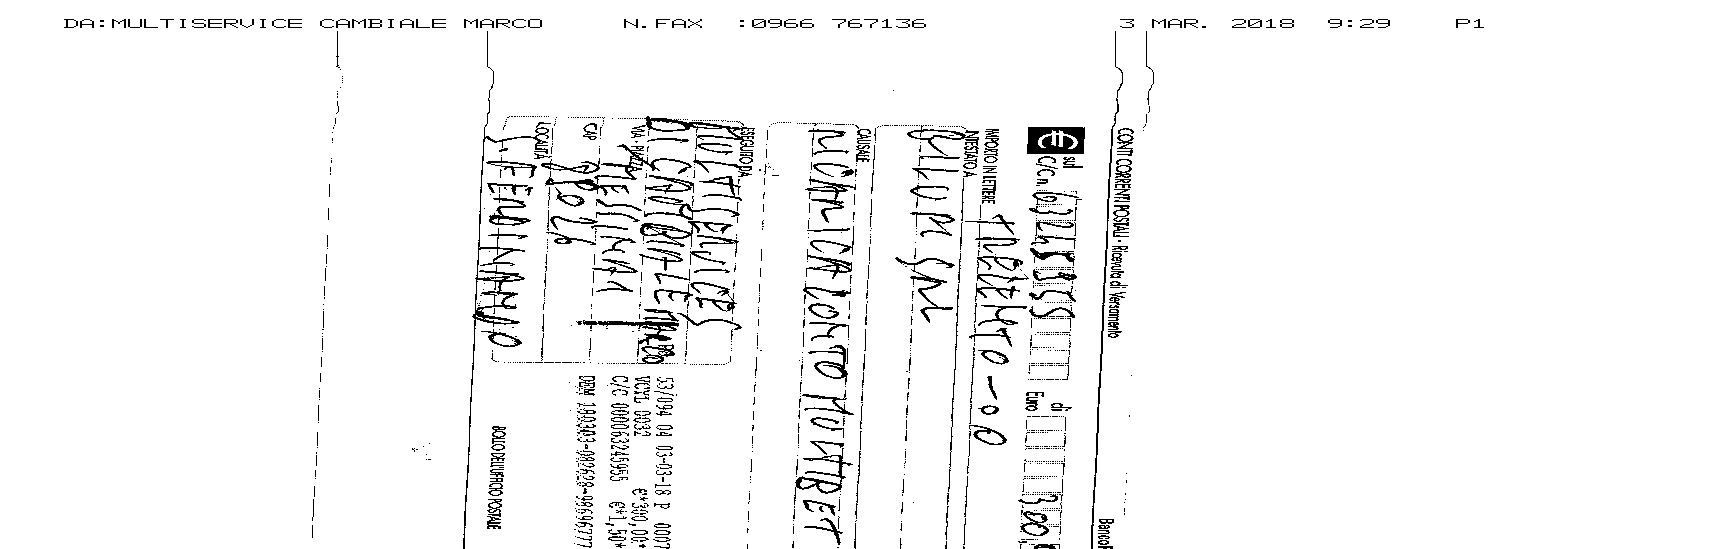 DA:MULTISERVICE CAMBIALE MARCO N.FAX :0966 767136 3 MAR. 2018 9:29 P1
CONTI CORRENTI POSTALI - Ricevuta di Versamento
sul C/C n. di Euro 300,
IMPORTO IN LETTERE TRECENTO-00
INTESTATO A
BILUPI SRL
CAUSALE
RICARICA CONTO MULTIBET
ESEGUITO DA
MULTISERVICES
DI CAMBIALE MARCO
VIA - PIAZZA MESSINA 1
CAP 89026
LOCALITÀ
S. FERDINANDO
53/094 04 03-03-18 P 0007
VCYL 0032 €*300,00*
C/C 000063245955 €*1,50*
BOLLO DELL'UFFICIO POSTALE